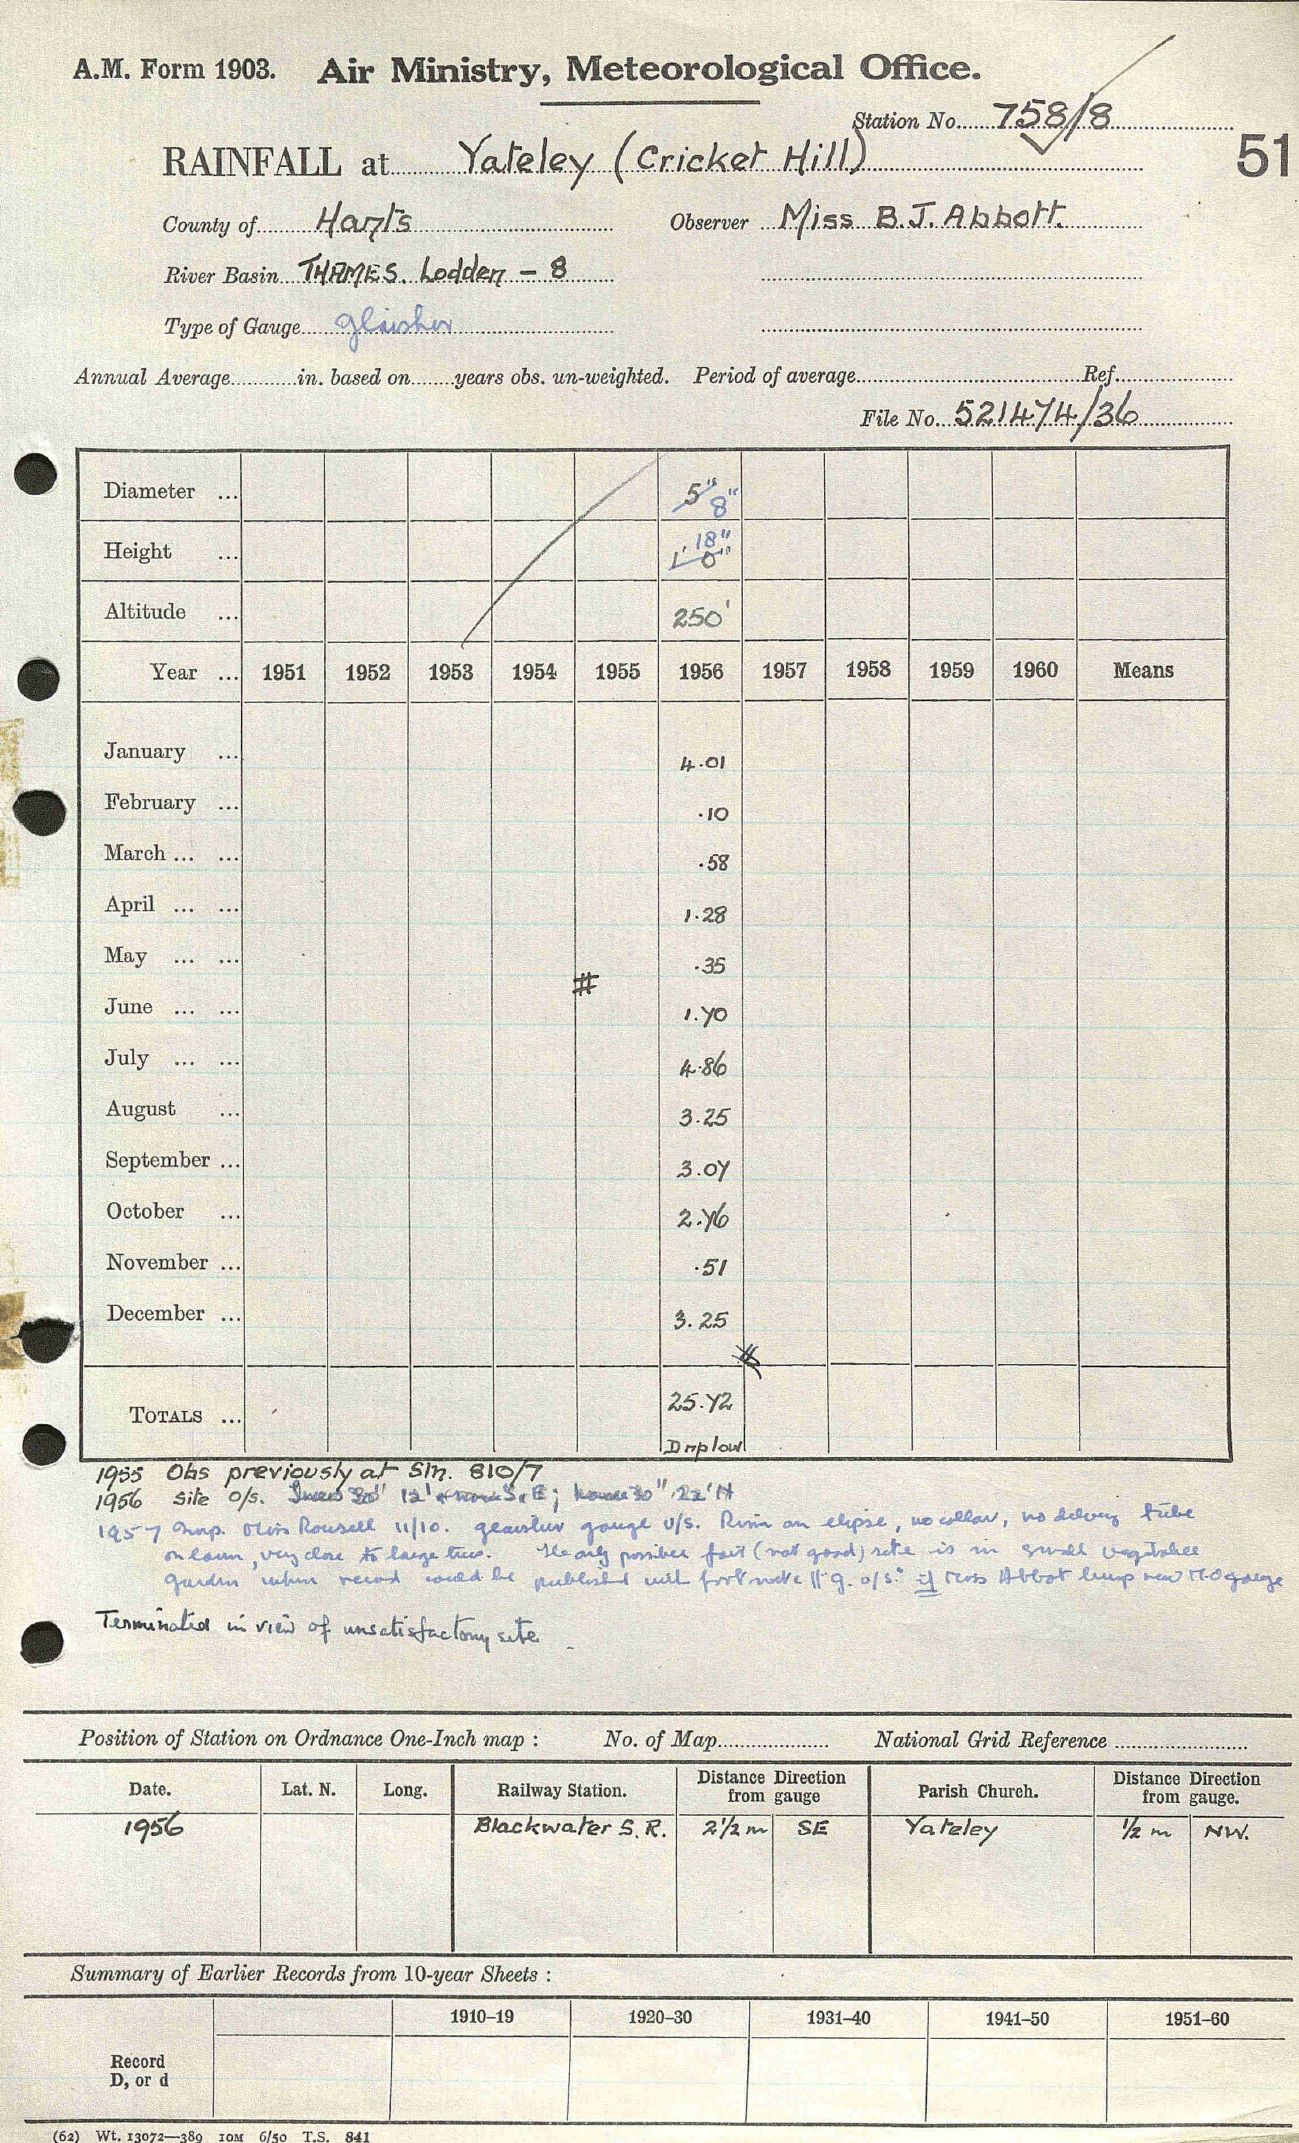 A.M. Form 1903. Air Ministry, Meteorological Office.
Station No. 758/8
51
RAINFALL at Yateley (Cricket Hill)
County of Hants Observer Miss B.J. Abbott.
River Basin THAMES. Loddon - 8
Type of Gauge glaisher
Annual Average in. based on years obs. un-weighted. Period of average Ref.
File No. 521474/36
Diameter ... 5" 8"
Height ... 18" 1' 0"
Altitude ... 250'
Year ... 1951 1952 1953 1954 1955 1956 1957 1958 1959 1960 Means
January ... 4.01
February ... .10
March ... ... .58
April ... ... 1.28
May ... ... .35
#
June ... ... 1.70
July ... ... 4.86
August ... 3.25
September ... 3.07
October ... 2.76
November ... .51
December ... 3.25
TOTALS ... 25.72
Dnplow
1955 Obs previously at Stn. 810/7
1956 Site o/s. 12' S.E; 22' N
1957 Insp. Miss Rousell 11/10. glaisher gauge u/s. Rim an elipse, no collar, no delivery tube
on lawn, very close to large trees. The only possible fair (not good) site is in small vegetable
garden when record could be published with footnote "g. o/s." if Miss Abbot buys new M.O gauge
Terminated in view of unsatisfactory site
Position of Station on Ordnance One-Inch map : No. of Map National Grid Reference
Date. Lat. N. Long. Railway Station. Distance Direction from gauge Parish Church. Distance Direction from gauge.
1956 Blackwater S.R. 2½ m SE Yateley ½ m NW.
Summary of Earlier Records from 10-year Sheets :
1910–19 1920–30 1931–40 1941–50 1951–60
Record
D, or d
(62) Wt. 13072—389 10M 6/50 T.S. 841